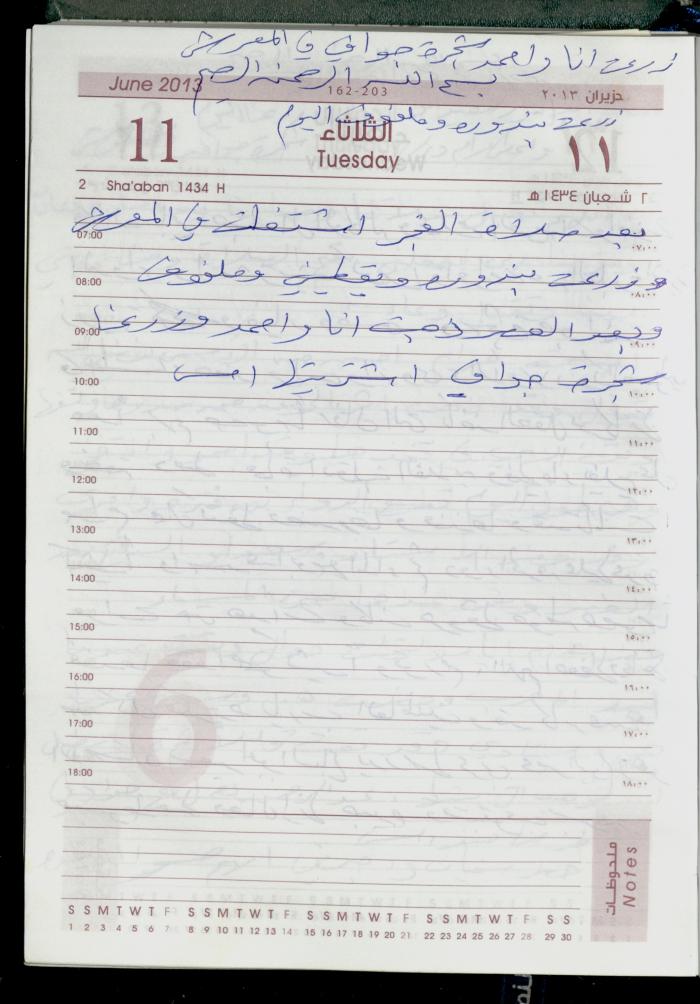 زرعت انا واحمد شجرة جوافي في المعرش
بسم الله الرحمن الرحيم
June 2013
162-203
حزيران ٢٠١٣
زرعت بندوره وملفوف اليوم
11
الثلاثاء
Tuesday
١١
2 Sha'aban 1434 H
٢ شعبان ١٤٣٤ هـ
بعد صلاة الفجر اشتغلت في المعرش
07:00
٠٧,٠٠
وزرعت بندوره ويقطين وملفوف
08:00
٠٨,٠٠
وبعد العصر ذهبت انا واحمد وزرعنا
09:00
٠٩,٠٠
شجرة جوافي اشتريتها امس
10:00
١٠,٠٠
11:00
١١,٠٠
12:00
١٢,٠٠
13:00
١٣,٠٠
14:00
١٤,٠٠
15:00
١٥,٠٠
16:00
١٦,٠٠
17:00
١٧,٠٠
18:00
١٨,٠٠
6
ملحوظات
Notes
S S M T W T F S S M T W T F S S M T W T F S S M T W T F S S
1 2 3 4 5 6 7 8 9 10 11 12 13 14 15 16 17 18 19 20 21 22 23 24 25 26 27 28 29 30